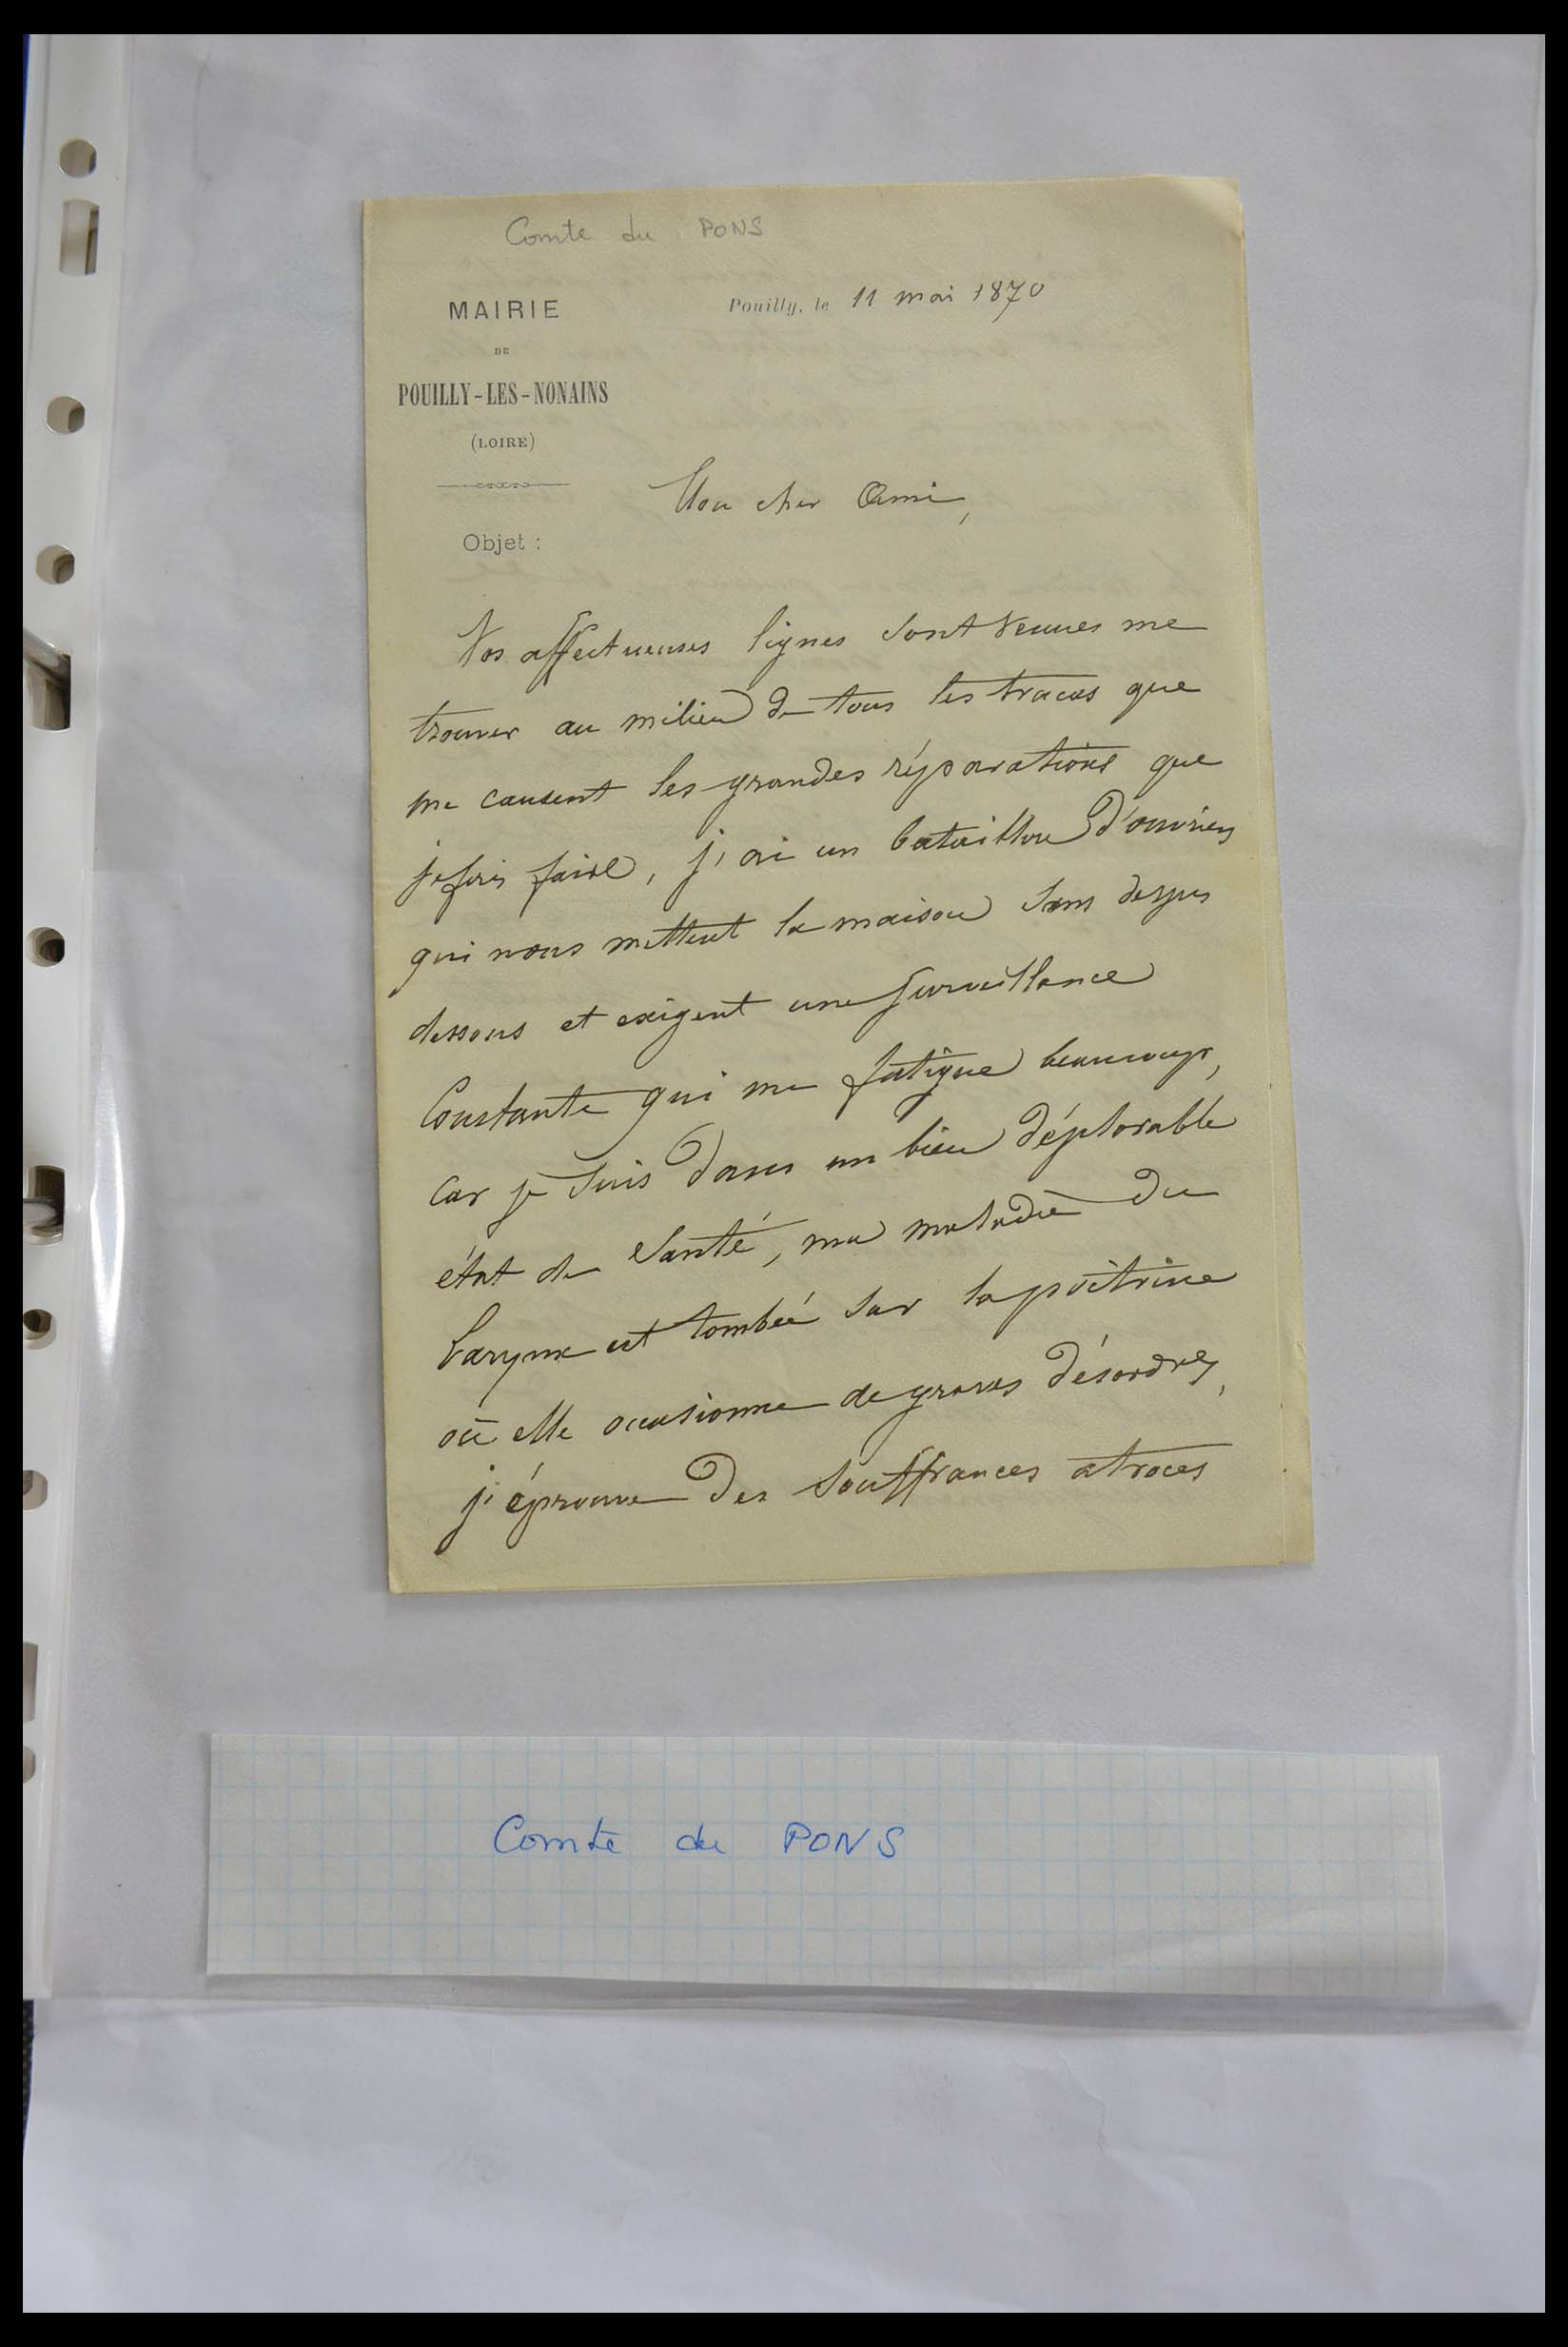 Comte du PONS
MAIRIE
DE
POUILLY-LES-NONAINS
(LOIRE)
Pouilly, le 11 mai 1870
Mon cher Ami,
Objet :
Vos affectueuses lignes sont venues me
trouver au milieu de tous les tracas que
me causent les grandes réparations que
je fais faire, j'ai un bataillon d'ouvriers
qui nous mettent la maison sans dessus
dessous et exigent une surveillance
Constante qui me fatigue beaucoup,
car je suis dans un bien déplorable
état de santé, ma maladie du
larynx est tombée sur la poitrine
où elle occasionne de graves désordres,
j'éprouve des souffrances atroces
Comte du PONS